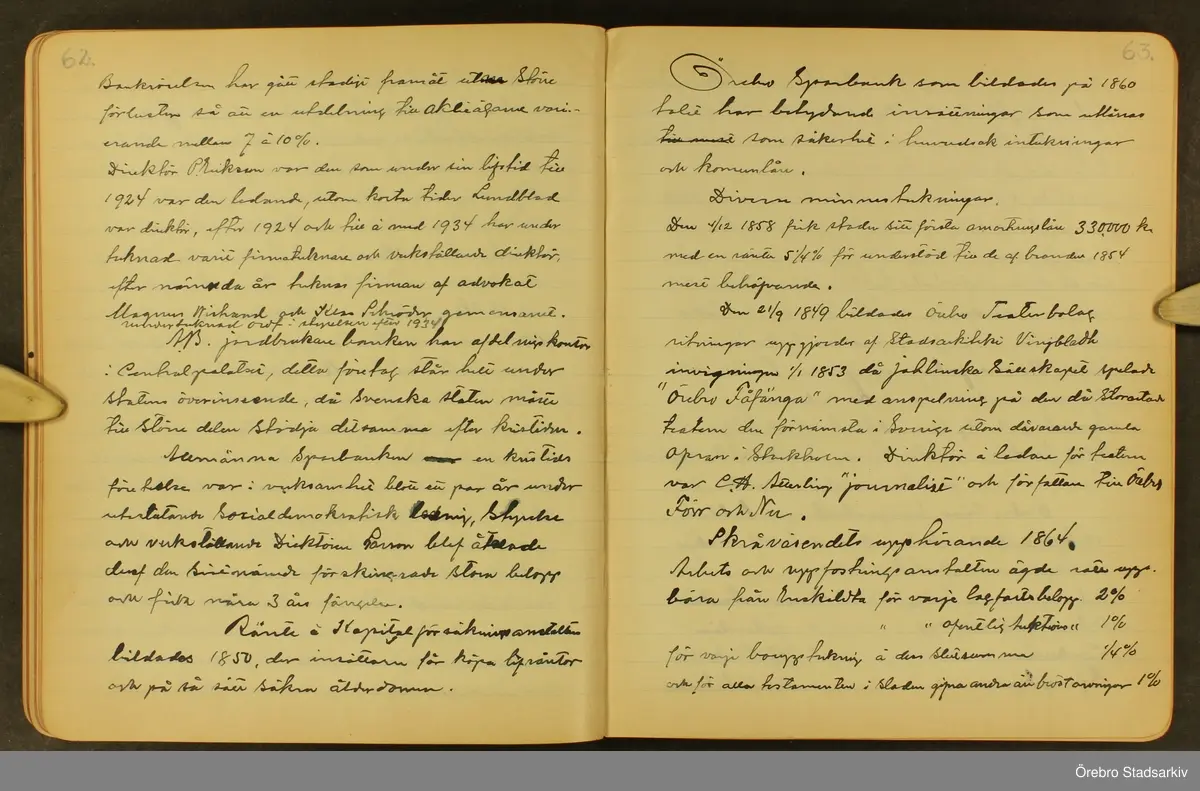 62.
Bankrörelsen har gått stadigt framåt utan större
förluster så att en utdelning till aktieägarne vari-
erande mellan 7 à 10%.
Direktör P. Erikson var den som under sin lifstid till
1924 var den ledande, utom korta tider Lundblad
var direktör, efter 1924 och till å med 1934 har under
tecknad varit firmatecknare och verkställande direktör,
efter nämnda år tecknas firman af advokat
Magnus och Klas Schröder gemensamt.
undertecknad ordf. i styrelsen efter 1934
A.B. jordbrukare banken har afdelningskontor
i Centralpalatset, detta företag står helt under
statens överinseende, då Svenska staten måste
till större delen stödja detsamma efter kristiden.
Allmänna Sparbanken en kristids
företeelse var i verksamhet blott ett par år under
uteslutande Socialdemokratisk ledning, Styrelse
och verkställande Direktören Larson blef åtalade
deraf den sistnämde förskingrade stora belopp
och fick nära 3 års fängelse.
Ränte å Kapitalförsäkringsanstalten
bildades 1850, der insättaren får köpa lifräntor
och på så sätt säkra ålderdomen.
63.
Örebro Sparbank som bildades på 1860
talet har betydand insättningar som utlånas
till mest som säkerhet i huvudsak inteckningar
och komunlån.
Diverse minnesteckningar.
Den 1/12 1858 fick staden sitt första amorteringslån 330,000 kr.
med en ränta 5 1/4% för understöd till de af branden 1854
mest behöfvande.
Den 21/9 1849 bildades Örebro Teaterbolag
ritningar uppgjordes af Stadsarkitekt Vingbladh
invigningen 1/1 1853 då Sällskapet spelade
"Örebro Fåfänga" med anspelning på den då storartade
teatern den förnämsta i Sverige utom dåvarande gamla
Operan i Stockholm. Direktör å ledare för teatern
var C.H. Atterling "journalist" och författare till Örebro
Förr och Nu.
Skråväsendets upphörande 1864.
Arbets och uppfostringsanstalten ägde rätt upp-
bära från Enskildta för varje lagfartsbelopp 2%
" " ofentlig auktions " 1%
för varje bouppteckning å den slutsumma 1/4%
och för alla testamenten i staden gifna andra än bröstarvingar 1%
Örebro Stadsarkiv